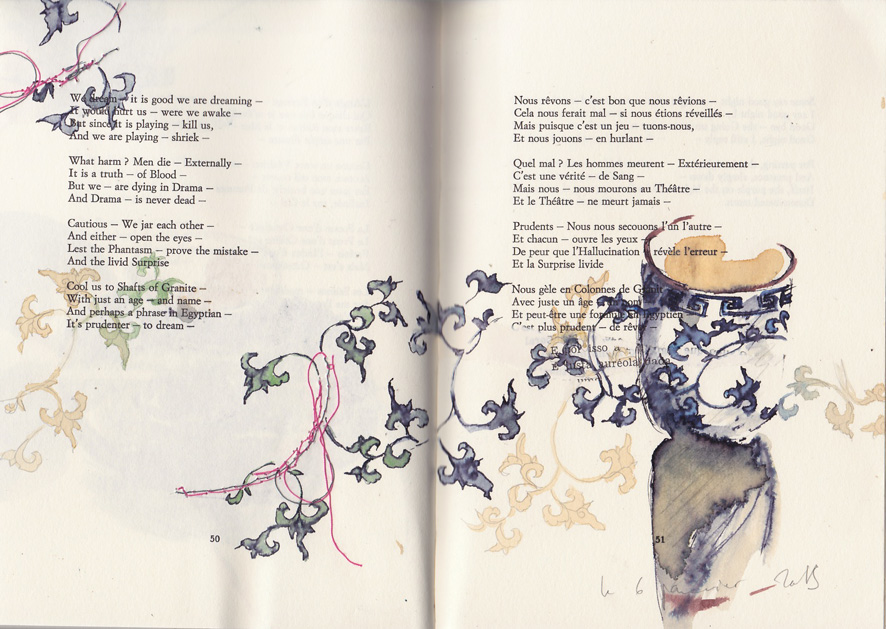 We dream — it is good we are dreaming —
It would hurt us — were we awake —
But since it is playing — kill us,
And we are playing — shriek —
What harm ? Men die — Externally —
It is a truth — of Blood —
But we — are dying in Drama —
And Drama — is never dead —
Cautious — We jar each other —
And either — open the eyes —
Lest the Phantasm — prove the mistake —
And the livid Surprise
Cool us to Shafts of Granite —
With just an age — and name —
And perhaps a phrase in Egyptian —
It's prudenter — to dream —
50
Nous rêvons — c'est bon que nous rêvions —
Cela nous ferait mal — si nous étions réveillés —
Mais puisque c'est un jeu — tuons-nous,
Et nous jouons — en hurlant —
Quel mal ? Les hommes meurent — Extérieurement —
C'est une vérité — de Sang —
Mais nous — nous mourons au Théâtre —
Et le Théâtre — ne meurt jamais —
Prudents — Nous nous secouons l'un l'autre —
Et chacun — ouvre les yeux —
De peur que l'Hallucination révèle l'erreur —
Et la Surprise livide
Nous gèle en Colonnes de Granit —
Avec juste un âge — un nom —
Et peut-être une formule en Égyptien —
C'est plus prudent — de rêver —
E por isso a
auréola
51
le 6 janvier — 2013